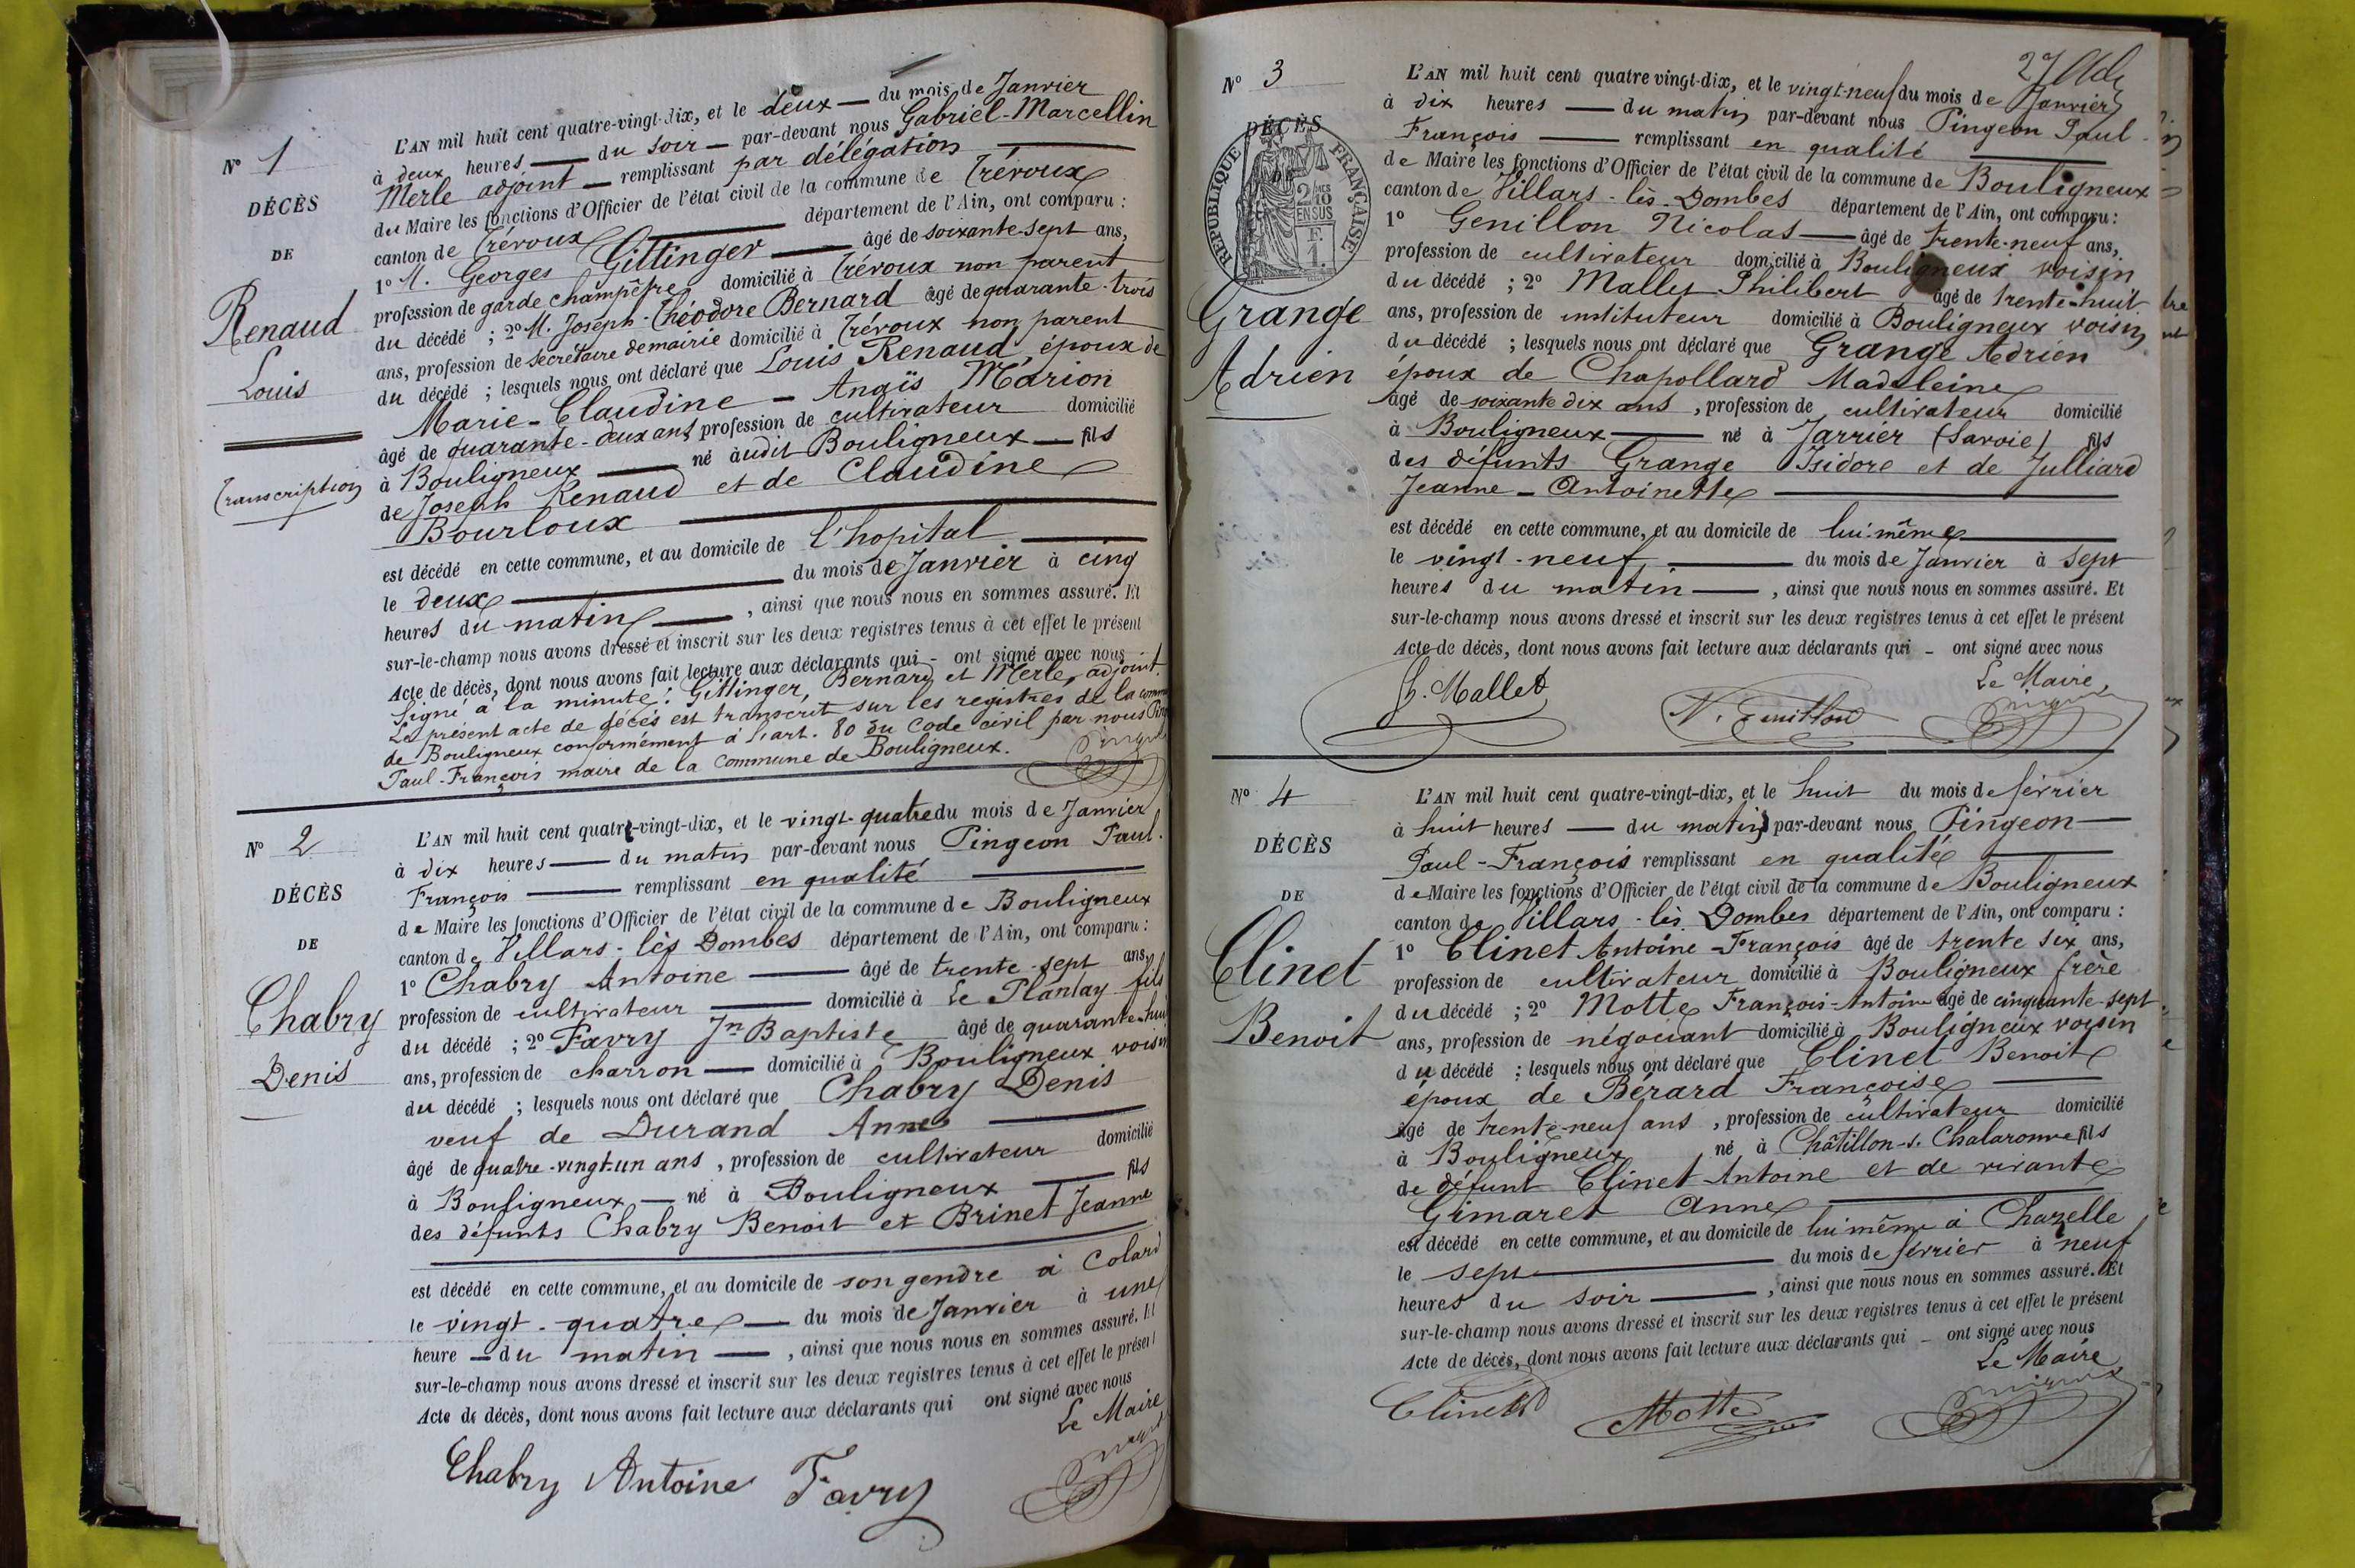 N° 1
DÉCÈS
DE
Renaud
Louis
Transcription
L'AN mil huit cent quatre-vingt-dix, et le deux du mois de Janvier
à deux heures du soir par-devant nous Gabriel-Marcellin
Merle adjoint remplissant par délégation
du Maire les fonctions d'Officier de l'état civil de la commune de Trévoux
canton de Trévoux département de l'Ain, ont comparu :
1° M. Georges Gittinger âgé de soixante-sept ans,
profession de garde champêtre domicilié à Trévoux non parent
du décédé ; 2° M. Joseph-Théodore Bernard âgé de quarante-trois
ans, profession de secrétaire de mairie domicilié à Trévoux non parent
du décédé ; lesquels nous ont déclaré que Louis Renaud, époux de
Marie-Claudine-Anaïs Marion
âgé de quarante-deux ans profession de cultivateur domicilié
à Bouligneux né audit Bouligneux fils
de Joseph Renaud et de Claudine
Bourloux
est décédé en cette commune, et au domicile de l'hopital
le deux du mois de Janvier à cinq
heures du matin, ainsi que nous nous en sommes assuré. Et
sur-le-champ nous avons dressé et inscrit sur les deux registres tenus à cet effet le présent
Acte de décès, dont nous avons fait lecture aux déclarants qui - ont signé avec nous
Signé à la minute : Gittinger, Bernard et Merle, adjoint.
Le présent acte de décès est transcrit sur les registres de la
de Bouligneux conformément à l'art. 80 du Code civil par nous
Paul-François maire de la commune de Bouligneux.
N° 2
DÉCÈS
DE
Chabry
Denis
L'AN mil huit cent quatre-vingt-dix, et le vingt-quatre du mois de Janvier
à dix heures du matin par-devant nous Pingeon Paul-
François remplissant en qualité
de Maire les fonctions d'Officier de l'état civil de la commune de Bouligneux
canton de Villars-lès-Dombes département de l'Ain, ont comparu :
1° Chabry Antoine âgé de trente-sept ans,
profession de cultivateur domicilié à Le Plantay fils
du décédé ; 2° Favry Jn Baptiste âgé de quarante-huit
ans, profession de charron domicilié à Bouligneux voisin
du décédé ; lesquels nous ont déclaré que Chabry Denis
veuf de Durand Anne
âgé de quatre-vingt-un ans, profession de cultivateur domicilié
à Bouligneux né à Bouligneux fils
des défunts Chabry Benoit et Brinet Jeanne
est décédé en cette commune, et au domicile de son gendre à Coland
le vingt-quatre du mois de Janvier à une
heure du matin, ainsi que nous nous en sommes assuré. Et
sur-le-champ nous avons dressé et inscrit sur les deux registres tenus à cet effet le présent
Acte de décès, dont nous avons fait lecture aux déclarants qui ont signé avec nous
Le Maire
Chabry Antoine Favry
N° 3
DÉCÈS
RÉPUBLIQUE FRANÇAISE
2/10 EN SUS
Grange
Adrien
L'AN mil huit cent quatre vingt-dix, et le vingt-neuf du mois de Janvier
à dix heures du matin par-devant nous Pingeon Paul-
François remplissant en qualité
de Maire les fonctions d'Officier de l'état civil de la commune de Bouligneux
canton de Villars-lès-Dombes département de l'Ain, ont comparu :
1° Genillon Nicolas âgé de trente-neuf ans,
profession de cultivateur domicilié à Bouligneux voisin
du décédé ; 2° Mallet Philibert âgé de trente-huit
ans, profession de instituteur domicilié à Bouligneux voisin
du décédé ; lesquels nous ont déclaré que Grange Adrien
époux de Chapollard Madeleine
âgé de soixante dix ans, profession de cultivateur domicilié
à Bouligneux né à Jarrier (Savoie) fils
des défunts Grange Isidore et de Julliard
Jeanne-Antoinette
est décédé en cette commune, et au domicile de lui-même
le vingt-neuf du mois de Janvier à sept
heures du matin, ainsi que nous nous en sommes assuré. Et
sur-le-champ nous avons dressé et inscrit sur les deux registres tenus à cet effet le présent
Acte de décès, dont nous avons fait lecture aux déclarants qui - ont signé avec nous
Le Maire,
P. Mallet N. Genillon
N° 4
DÉCÈS
DE
Clinet
Benoit
L'AN mil huit cent quatre-vingt-dix, et le huit du mois de février
à huit heures du matin par-devant nous Pingeon
Paul-François remplissant en qualité
de Maire les fonctions d'Officier de l'état civil de la commune de Bouligneux
canton de Villars-les-Dombes département de l'Ain, ont comparu :
1° Clinet Antoine-François âgé de trente six ans,
profession de cultivateur domicilié à Bouligneux frère
du décédé ; 2° Motte François-Antoine âgé de cinquante-sept
ans, profession de négociant domicilié à Bouligneux voisin
du décédé ; lesquels nous ont déclaré que Clinet Benoit
époux de Bérard Françoise
âgé de trente-neuf ans, profession de cultivateur domicilié
à Bouligneux né à Châtillon-s. Chalaronne fils
de défunt Clinet Antoine et de vivante
Gimaret Anne
est décédé en cette commune, et au domicile de lui même à Chazelle
le sept du mois de février à neuf
heures du soir, ainsi que nous nous en sommes assuré. Et
sur-le-champ nous avons dressé et inscrit sur les deux registres tenus à cet effet le présent
Acte de décès, dont nous avons fait lecture aux déclarants qui - ont signé avec nous
Le Maire
Clinet Motte